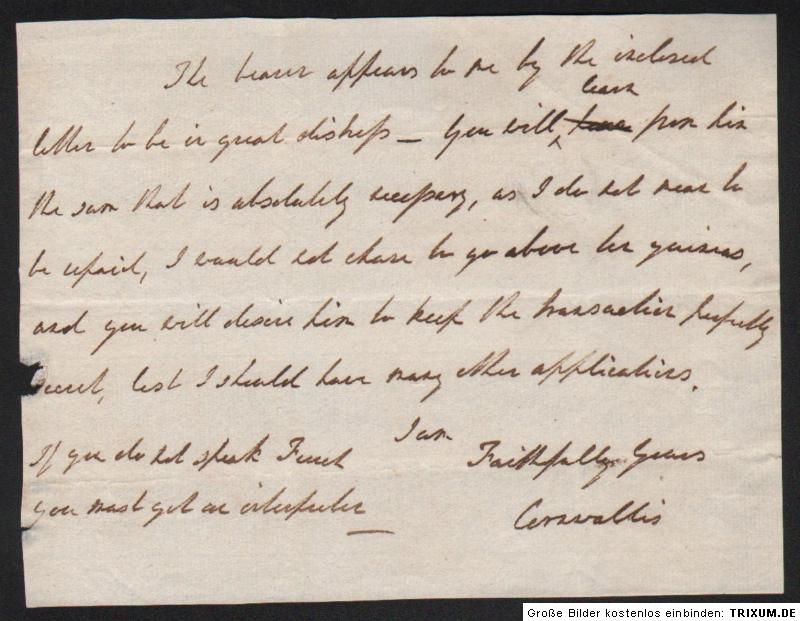 The bearer appears to me by the inclosed
learn
letter to be in great distress — You will from him
the sum that is absolutely necessary, as I do not mean to
be repaid, I would not chuse to go above ten guineas,
and you will desire him to keep the transaction perfectly
secret, lest I should have many other applications.
I am
If you do not speak French
Faithfully Yours
you must get an interpreter
Cornwallis
Große Bilder kostenlos einbinden: TRIXUM.DE